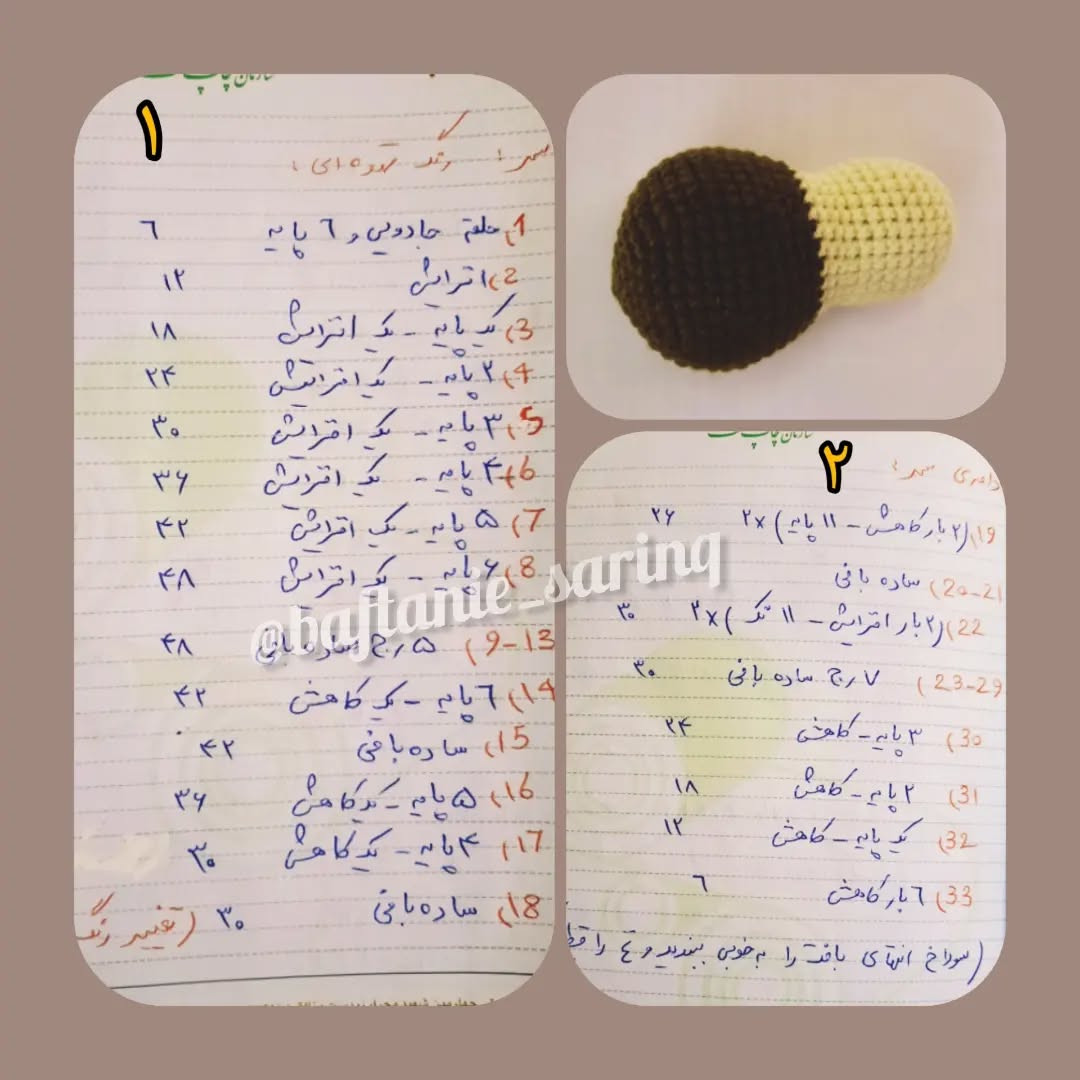 سازمان چاپ
۱
سر: رنگ قهوه‌ای:
1) حلقه جادویی و ٦ پایه ٦
2) افزایش ۱۲
3) یک پایه - یک افزایش ۱۸
4) ۲ پایه - یک افزایش ۲۴
5) ۳ پایه - یک افزایش ۳۰
6) ۴ پایه - یک افزایش ۳۶
7) ۵ پایه - یک افزایش ۴۲
8) ۶ پایه - یک افزایش ۴۸
9-13) ۵ رج ساده بافی ۴۸
14) ٦ پایه - یک کاهش ۴۲
15) ساده بافی ۴۲
16) ۵ پایه - یک کاهش ۳۶
17) ۴ پایه - یک کاهش ۳۰
18) ساده بافی ۳۰ (تغییر رنگ
@baftanie_sarinq
سازمان چاپ
۲
سر:
19) (۲ بار کاهش - ۱۱ پایه) ×۲ ۲۶
20-21) ساده بافی
22) (۲ بار افزایش - ۱۱ تک) ×۲ ۳۰
23-29) ۷ رج ساده بافی ۳۰
30) ۳ پایه - کاهش ۲۴
31) ۲ پایه - کاهش ۱۸
32) یک پایه - کاهش ۱۲
33) ٦ بار کاهش ٦
(سوراخ انتهای بافت را به خوبی ببندید و نخ را